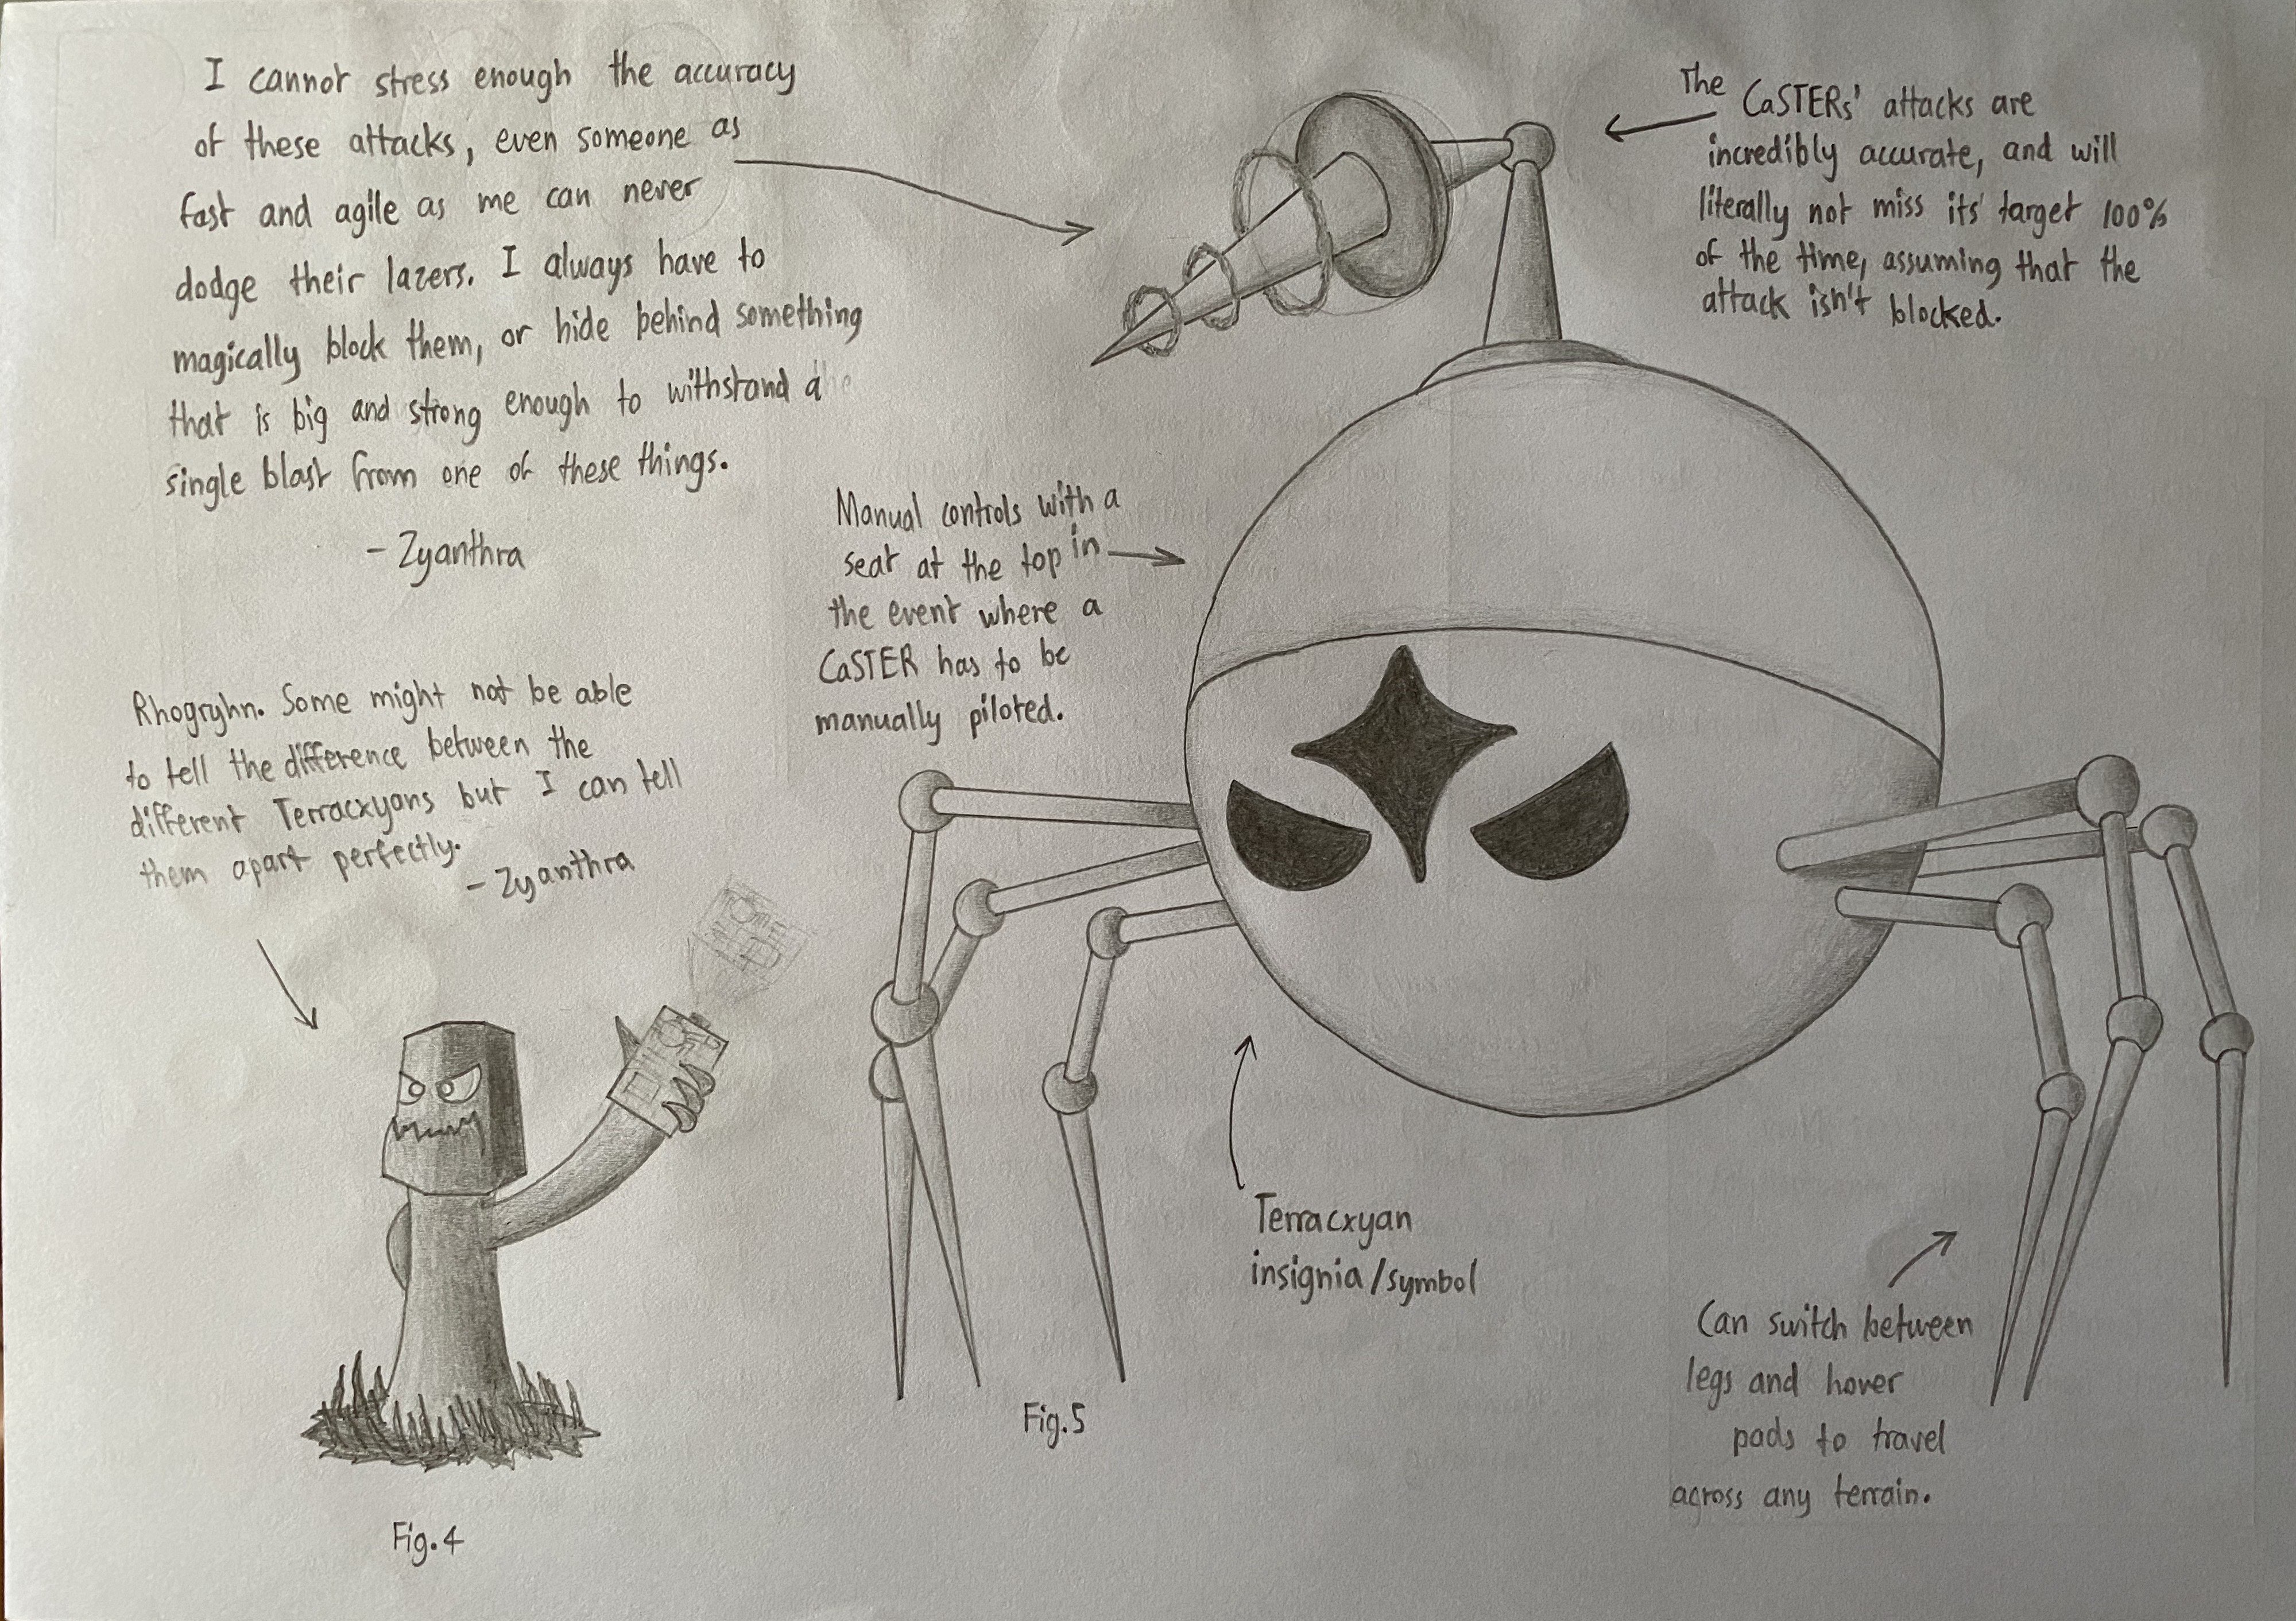 I cannot stress enough the accuracy
of these attacks, even someone as
fast and agile as me can never
dodge their lazers. I always have to
magically block them, or hide behind something
that is big and strong enough to withstand a
single blast from one of these things.
- Zyanthra
The CaSTERs' attacks are
incredibly accurate, and will
literally not miss its' target 100%
of the time, assuming that the
attack isn't blocked.
Manual controls with a
seat at the top in
the event where a
CaSTER has to be
manually piloted.
Rhogryhn. Some might not be able
to tell the difference between the
different Terracxyans but I can tell
them apart perfectly.
- Zyanthra
Terracxyan
insignia/symbol
Can switch between
legs and hover
pads to travel
across any terrain.
Fig.5
Fig.4